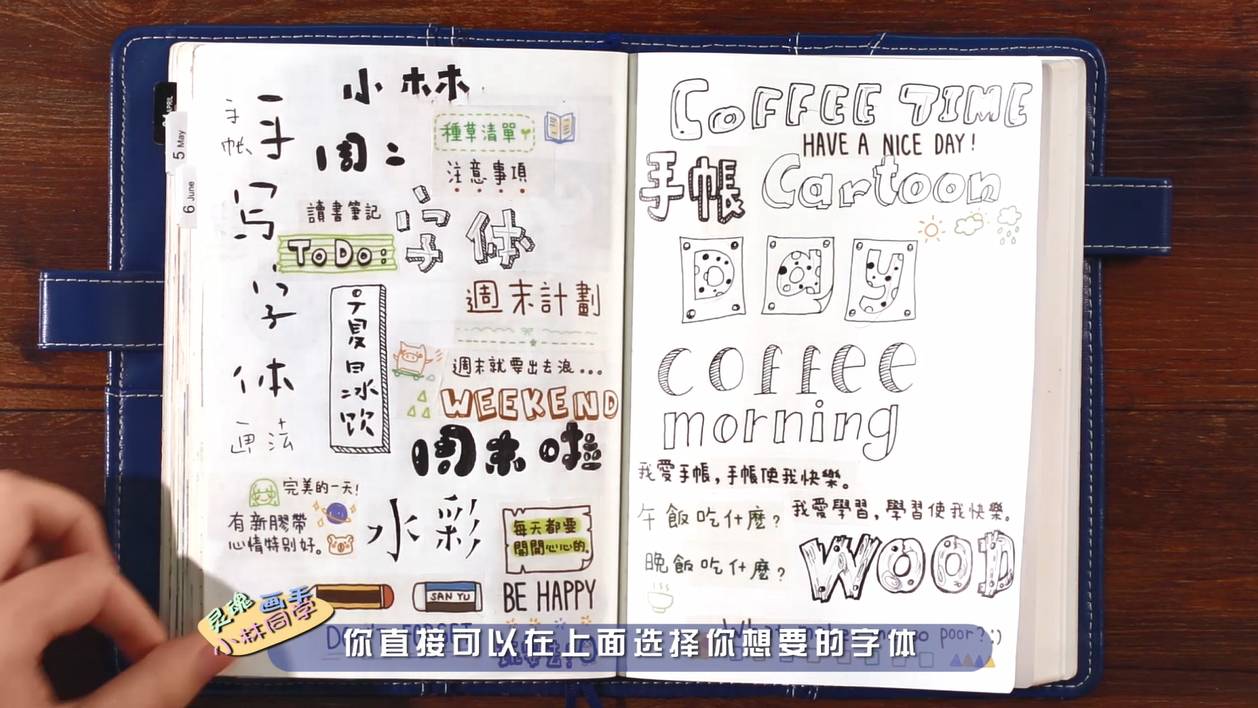 5 May
6 June
APRIL
小林
手帐
手写字体
画法
周二
種草清單
注意事項
讀書筆記
字体
ToDo:
週末計劃
夏日冰饮
週末就要出去浪...
WEEKEND
周末啦
完美的一天!
有新膠帶
心情特別好。
水彩
每天都要
開開心心的。
SAN YU
BE HAPPY
COFFEE TIME
HAVE A NICE DAY!
手帳
Cartoon
Day
coffee
morning
我愛手帳,手帳使我快樂。
午飯吃什麼?
我愛學習,學習使我快樂。
晚飯吃什麼?
WOOD
poor?:)
灵魂画手
小林同学
你直接可以在上面选择你想要的字体